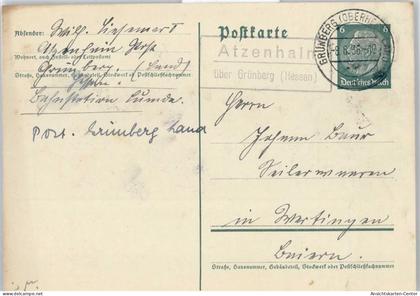 Absender: Wilh.
Atzenhain Post
Wohnort, auch Zustell- oder Leitpostamt
Grünberg, Land
Straße, Hausnummer, Gebäudeteil, Stockwerk od. Postschließfachnummer
Bahnstation Lumda.
Post. Grünberg Land
Postkarte
Atzenhain
über Grünberg (Hessen)
GRÜNBERG (OBERHESS
6 6
Deutsches Reich
Herrn
Johann Baur
Seilerwaren
in Wertingen
Baiern.
Straße, Hausnummer, Gebäudeteil, Stockwerk oder Postschließfachnummer
© Ansichtskarten-Center-Shop